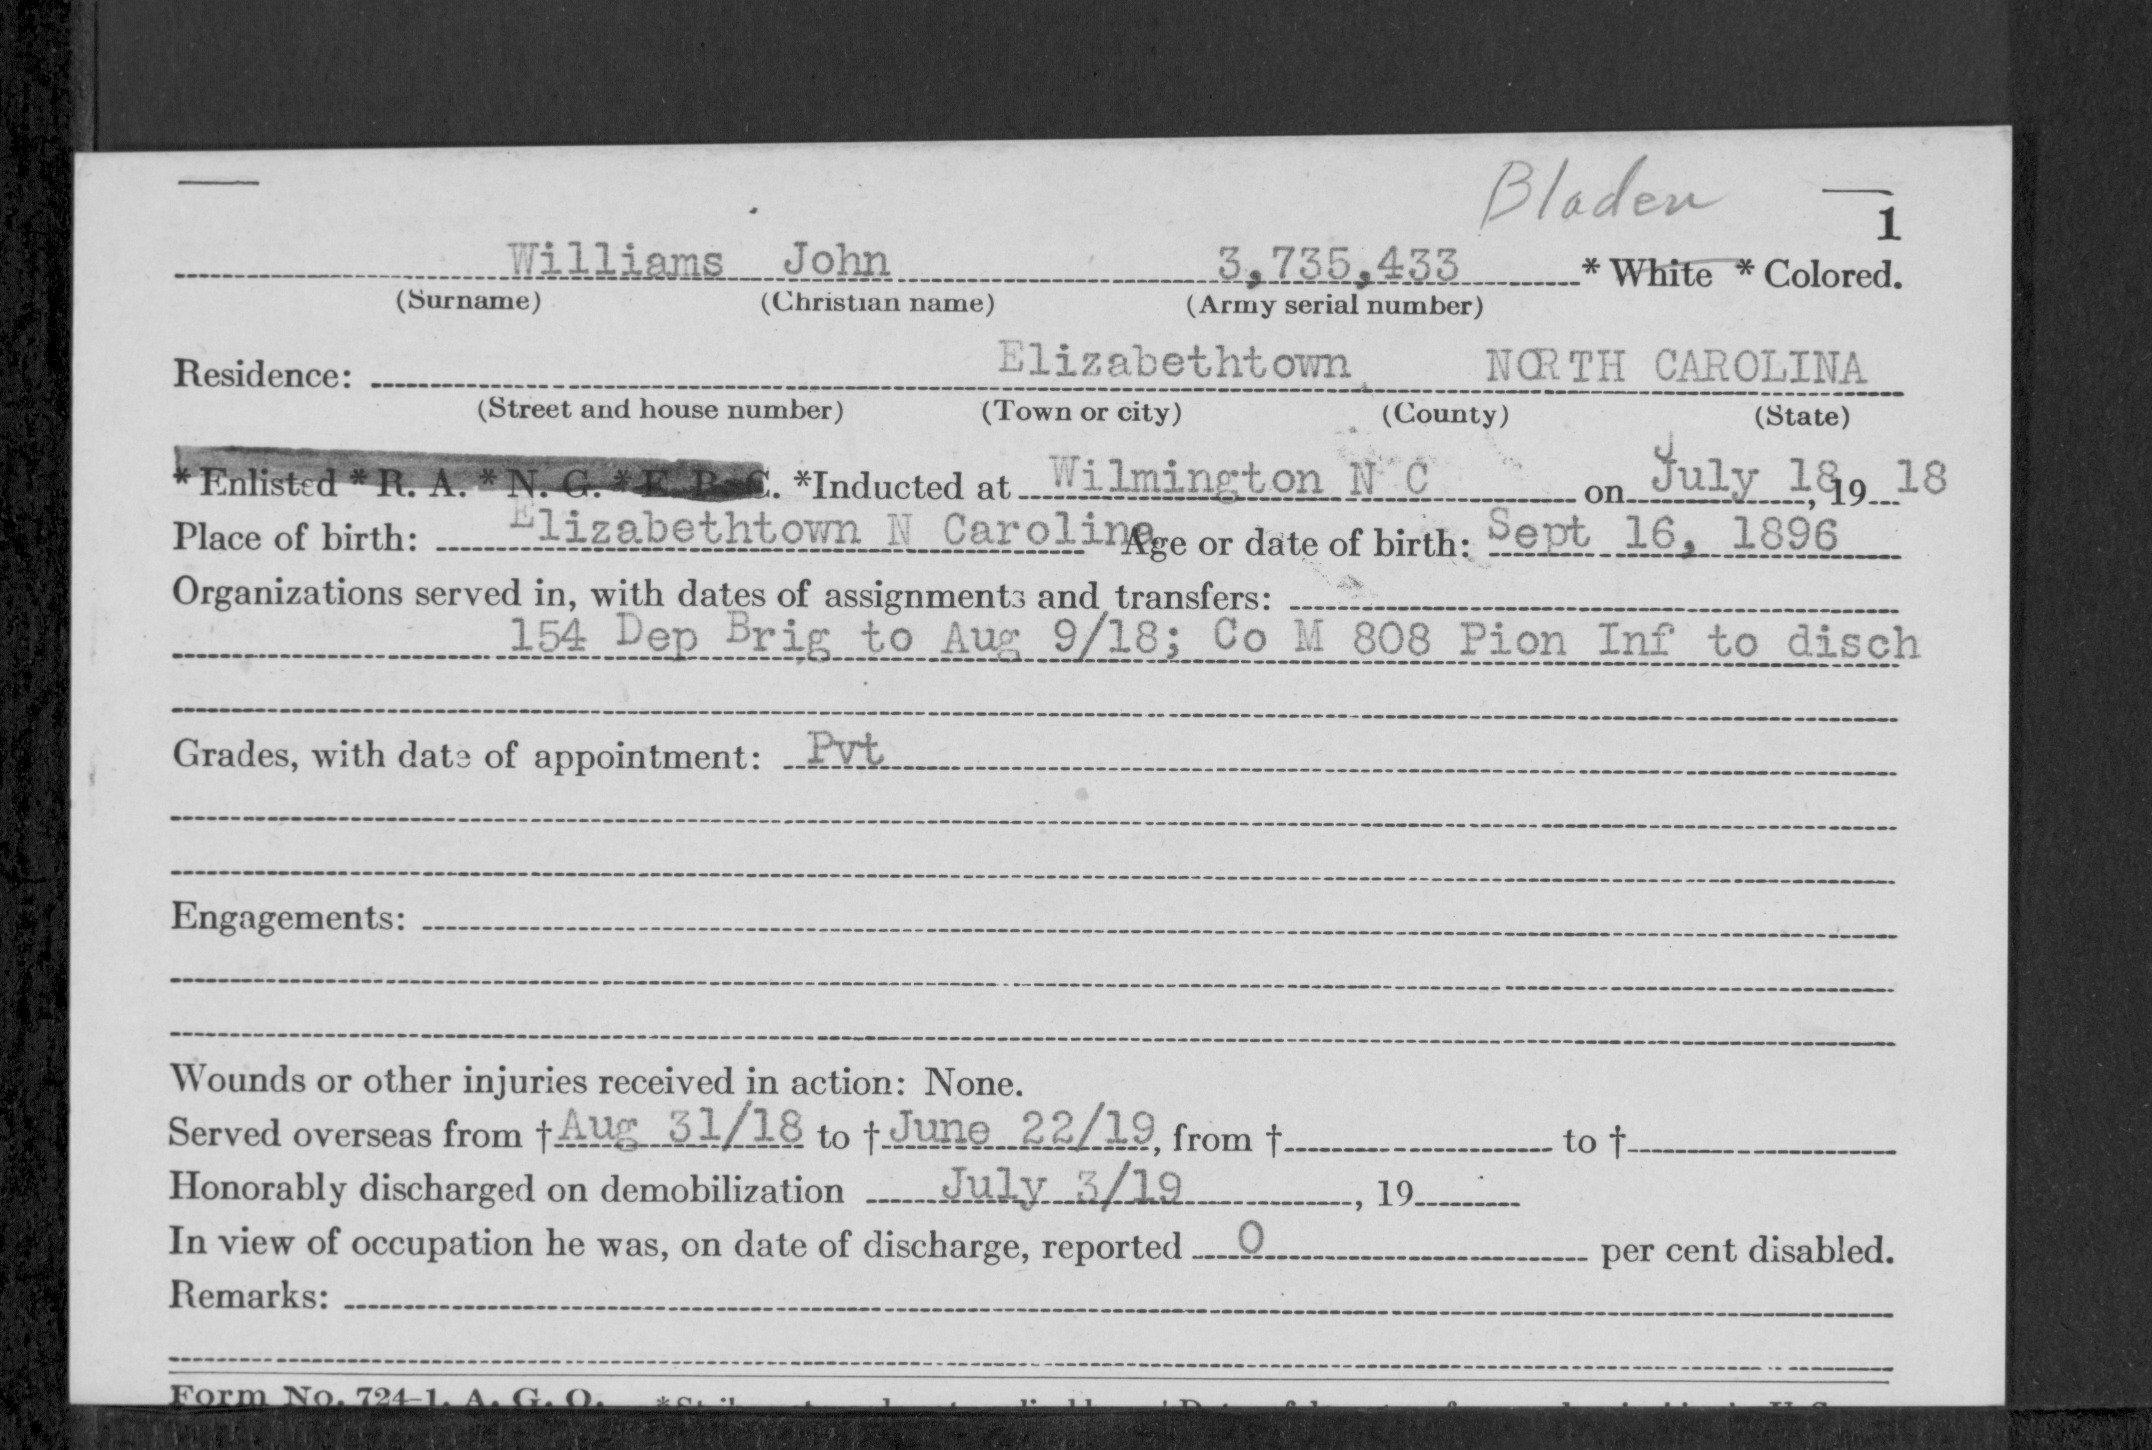 Bladen
1
Williams John 3,735,433 * White * Colored.
(Surname) (Christian name) (Army serial number)
Residence: Elizabethtown NORTH CAROLINA
(Street and house number) (Town or city) (County) (State)
* Enlisted * R. A. * N. G. * E. R. C. *Inducted at Wilmington N C on July 18, 19 18
Place of birth: Elizabethtown N Carolina Age or date of birth: Sept 16, 1896
Organizations served in, with dates of assignments and transfers:
154 Dep Brig to Aug 9/18; Co M 808 Pion Inf to disch
Grades, with date of appointment: Pvt
Engagements:
Wounds or other injuries received in action: None.
Served overseas from † Aug 31/18 to † June 22/19, from † to †
Honorably discharged on demobilization July 3/19, 19
In view of occupation he was, on date of discharge, reported 0 per cent disabled.
Remarks:
Form No. 724-1, A. G. O.